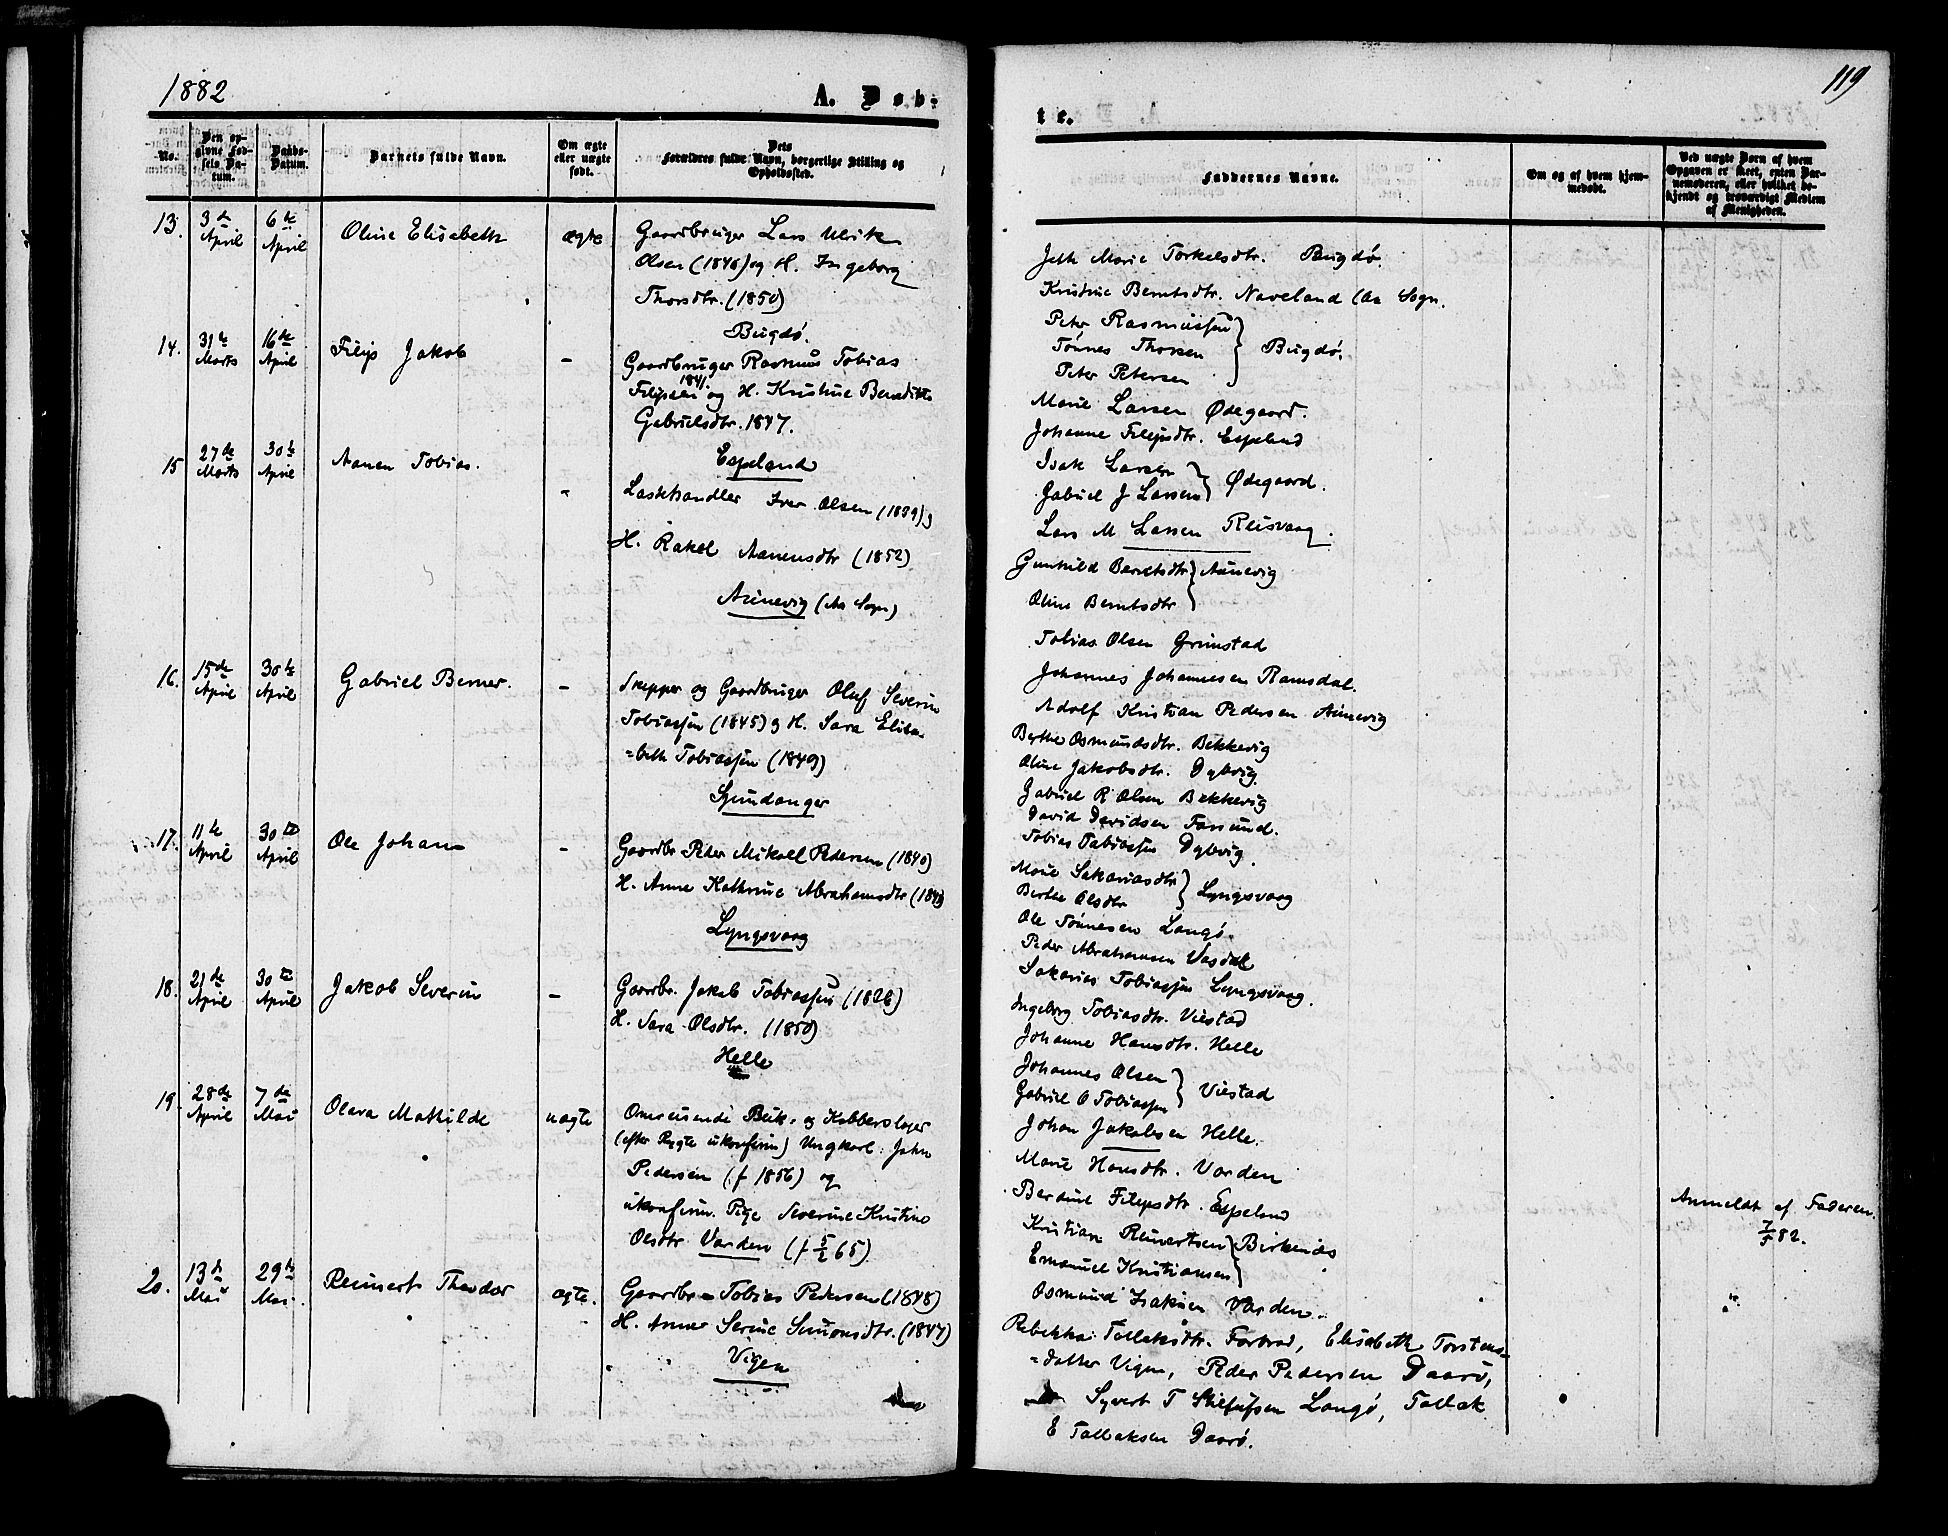 1882
A. Døb-
No.
Den opgivne Fødsels Datum.
Daabs-Datum.
Barnets fulde Navn.
Om ægte eller uægte født.
Dets Forældres fulde Navn, borgerlige Stilling og Opholdssted.
13. 3de April 6te April Oline Elisabeth ægte Gaardbruger Lars Ulrik
Olsen (1846) og H. Ingeborg
Thorsdtr. (1850)
Bugdø.
14. 31te Marts 16de April Filip Jakob - Gaardbruger Rasmus Tobias
Filipsen 1841. og H. Kristine Benedikte
Gabrielsdtr. 1847.
Espeland
15 27de Marts 30te April Aanen Tobias. - Lasthandler Iver Olsen (1839) g
H. Rakel Aanensdtr (1852)
Aunevig (Aa Sogn)
16. 15de April 30te April Gabriel Berner. - Skipper og Gaardbruger Oluf Severin
Tobiassen (1845) g H. Sara Elisa-
=beth Tobiassen (1849)
Spindanger
17. 11te April 30te April Ole Johan - Gaardbr. Peder Mikall Pedersen (1840)
H. Anne Kathrine Abrahamsdtr (1843)
Lyngsvaag
18. 21de April 30te April Jakob Severin - Gaardbr. Jakob Tobiassen (1826)
H. Sara Olsdtr. (1850)
Helle
19. 28de April 7de Mai Olava Mathilde uægte Omreisende Blik- og Kobberslager
(efter Rygte ukonfirm.) Ungkarl. John
Pedersen (f 1856) og
ukonfirm. Pige Severine Kristine
Olsdtr Varden (f 5/2 65)
20. 13de Mai 29de Mai. Reinert Theodor ægte. Gaardbr Tobias Pedersen (1848)
H. Anne Serine Simonsdtr. (1847)
Vigen
119
te.
Faddernes Navne.
Om og af hvem hjemmedøbt.
Ved uægte Born af hvem Opgaven er skeet, enten Barnemoderen, eller hvilket bekjendt og troværdigt Medlem af Menigheden.
Marie Torkelsdtr. Bugdø.
Kristine Berntsdtr. Naveland (Aa Sogn.
Peter Rasmussen
Tønnes Thorsen } Bugdø.
Peter Petersen
Marie Larsen Ødegaard.
Johanne Filipsdtr. Espeland
Isak Larsen
Gabriel J Larsen } Ødegaard.
Lars M Larsen Reisvaag.
Gunhild Berntsdtr } Aunevig
Oline Berntsdtr
Tobias Olsen Grimstad
Johannes Johannesen Ramsdal.
Adolf Kristian Pedersen Aunevig
Berthe Osmundsdtr. Bekkevig
Oline Jakobsdtr. Dybvig
Gabriel R Olsen Bekkevig
David Davidsen Farsund.
Tobias Tobiassen Dybvig.
Marie Sakariasdtr } Lyngsvaag
Berthe Olsdtr
Ole Tønnesen Langø.
Peder Abrahamsen Vasdal
Sakarias Tobiassen Lyngsvaag.
Ingeborg Tobiasdtr. Viestad
Johanne Hansdtr. Helle
Johannes Olsen
Gabriel O Tobiassen } Viestad
Johan Jakobsen Helle.
Marie Hansdtr. Varden
Berdine Filipsdtr. Espeland
Kristian Reinertsen } Birkenæs
Emanuel Kristiansen
Osmund Isaksen Varden.
Anmeldt af Faderen.
7/5 82.
Rebekka Tollaksdtr. Farbrod, Elisabeth Torstens=
=datter Vigen, Peder Pedersen Daarø,
Syvert T Stefufsen Langø, Tollak
E Tollaksen Daarø.